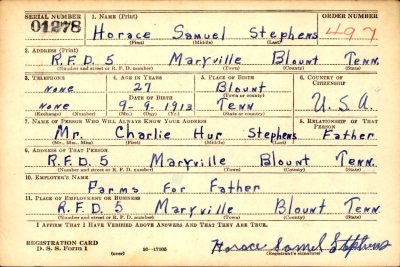 SERIAL NUMBER 1. NAME (Print) ORDER NUMBER
01278 Horace Samuel Stephens 497
(First) (Middle) (Last)
2. ADDRESS (Print)
R.F.D. 5 Maryville Blount Tenn.
(Number and street or R. F. D. number) (Town) (County) (State)
3. TELEPHONE 4. AGE IN YEARS 5. PLACE OF BIRTH 6. COUNTRY OF CITIZENSHIP
none 27 Blount
DATE OF BIRTH (Town or county)
none 9-9-1913 Tenn U.S.A.
(Exchange) (No.) (Mo.) (Day) (Yr.) (State or country)
7. NAME OF PERSON WHO WILL ALWAYS KNOW YOUR ADDRESS 8. RELATIONSHIP OF THAT PERSON
Mr. Charlie Hur Stephens Father
(Mr., Mrs., Miss) (First) (Middle) (Last)
9. ADDRESS OF THAT PERSON
R.F.D. 5 Maryville Blount Tenn.
(Number and street or R. F. D. number) (Town) (County) (State)
10. EMPLOYER'S NAME
Farms for Father
11. PLACE OF EMPLOYMENT OR BUSINESS
R.F.D. 5 Maryville Blount Tenn.
(Number and street or R. F. D. number) (Town) (County) (State)
I AFFIRM THAT I HAVE VERIFIED ABOVE ANSWERS AND THAT THEY ARE TRUE.
REGISTRATION CARD
D. S. S. Form 1 (over) 16—17105 Horace Samel Stephens
(Registrant's signature)